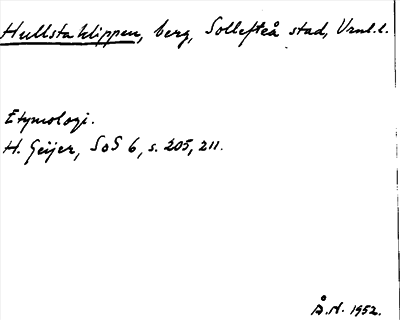 Hullstaklippen, berg, Sollefteå stad, Vrnl.l.
Etymologi.
H. Geijer, SoS 6, s. 205, 211.
Å.N. 1952.